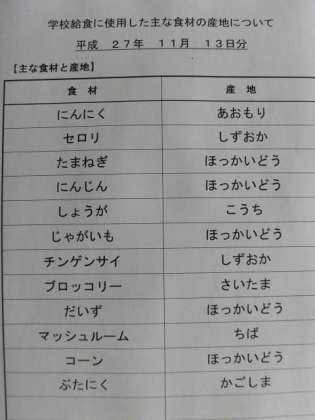 学校給食に使用した主な食材の産地について
平成　２７年　１１月　１３日分
【主な食材と産地】
食　材　産　地
にんにく　あおもり
セロリ　しずおか
たまねぎ　ほっかいどう
にんじん　ほっかいどう
しょうが　こうち
じゃがいも　ほっかいどう
チンゲンサイ　しずおか
ブロッコリー　さいたま
だいず　ほっかいどう
マッシュルーム　ちば
コーン　ほっかいどう
ぶたにく　かごしま